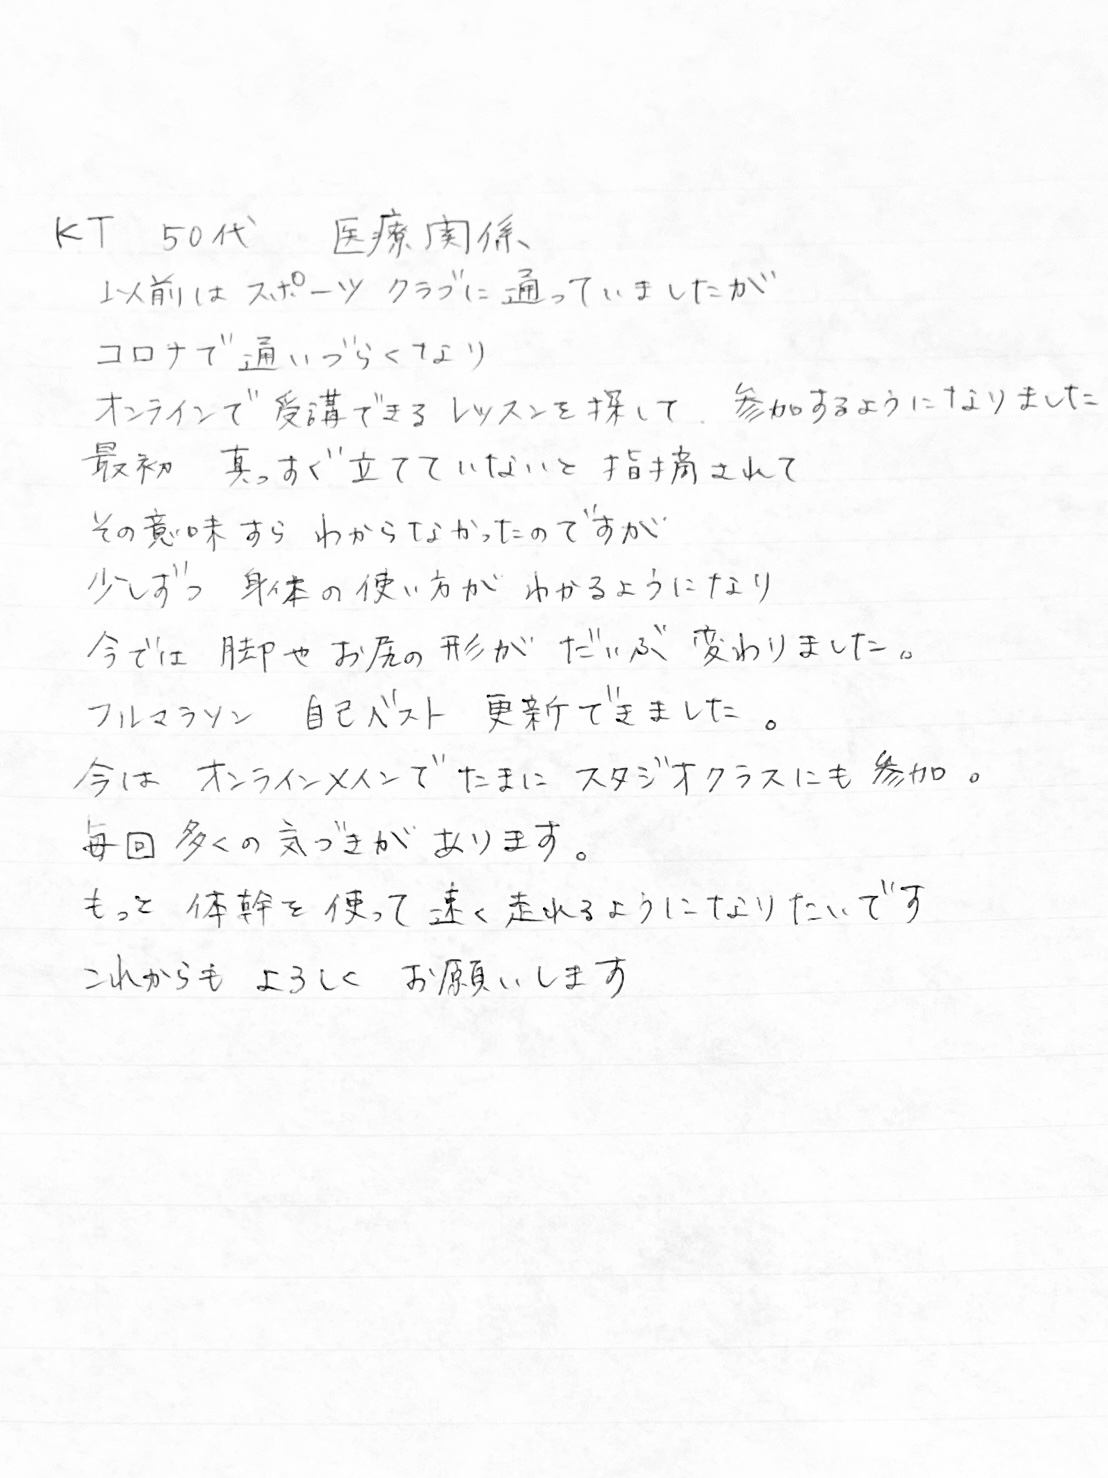 KT 50代 医療関係
以前は スポーツ クラブに 通っていましたが
コロナで 通いづらくなり
オンラインで 受講できる レッスンを 探して、参加するようになりました
最初 真っすぐ立てていないと 指摘されて
その意味すら わからなかったのですが
少しずつ 身体の使い方が わかるようになり
今では 脚や お尻の 形が だいぶ 変わりました。
フルマラソン 自己ベスト 更新できました。
今は オンラインメインで たまに スタジオクラスにも 参加。
毎回 多くの 気づきが あります。
もっと 体幹を 使って 速く 走れるようになりたいです
これからも よろしく お願いします